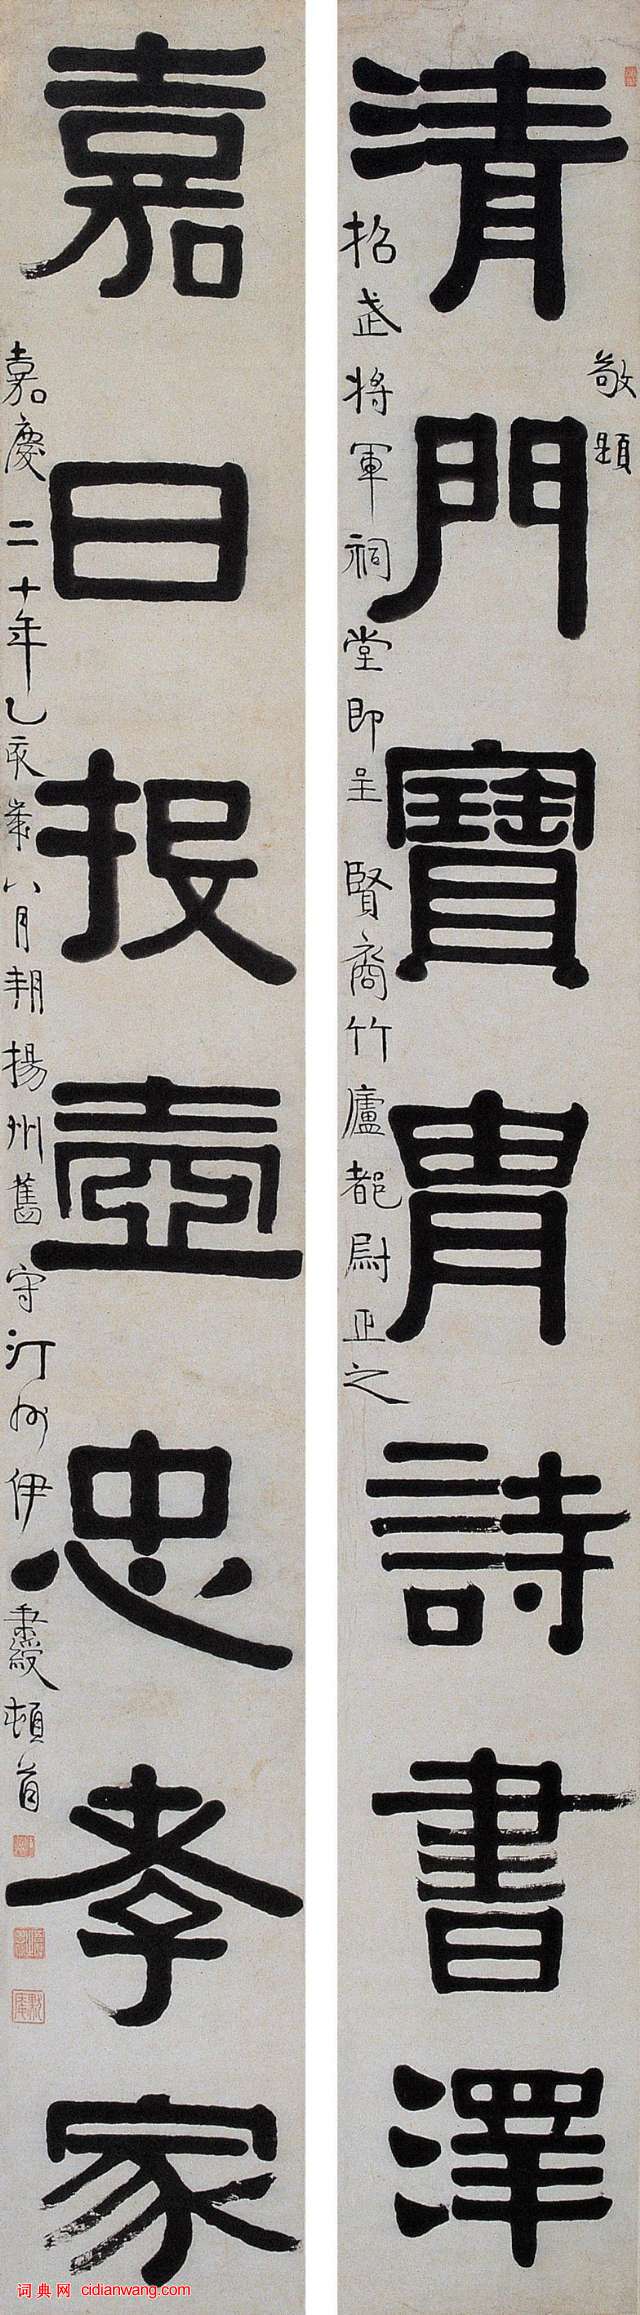 清門寶胄詩書澤
敬題
招武將軍祠堂即呈賢裔竹廬都尉正之
嘉日投壺忠孝家
嘉慶二十年乙亥歲八月朔揚州舊守汀州伊秉綬頓首
词典网 cidianwang.com